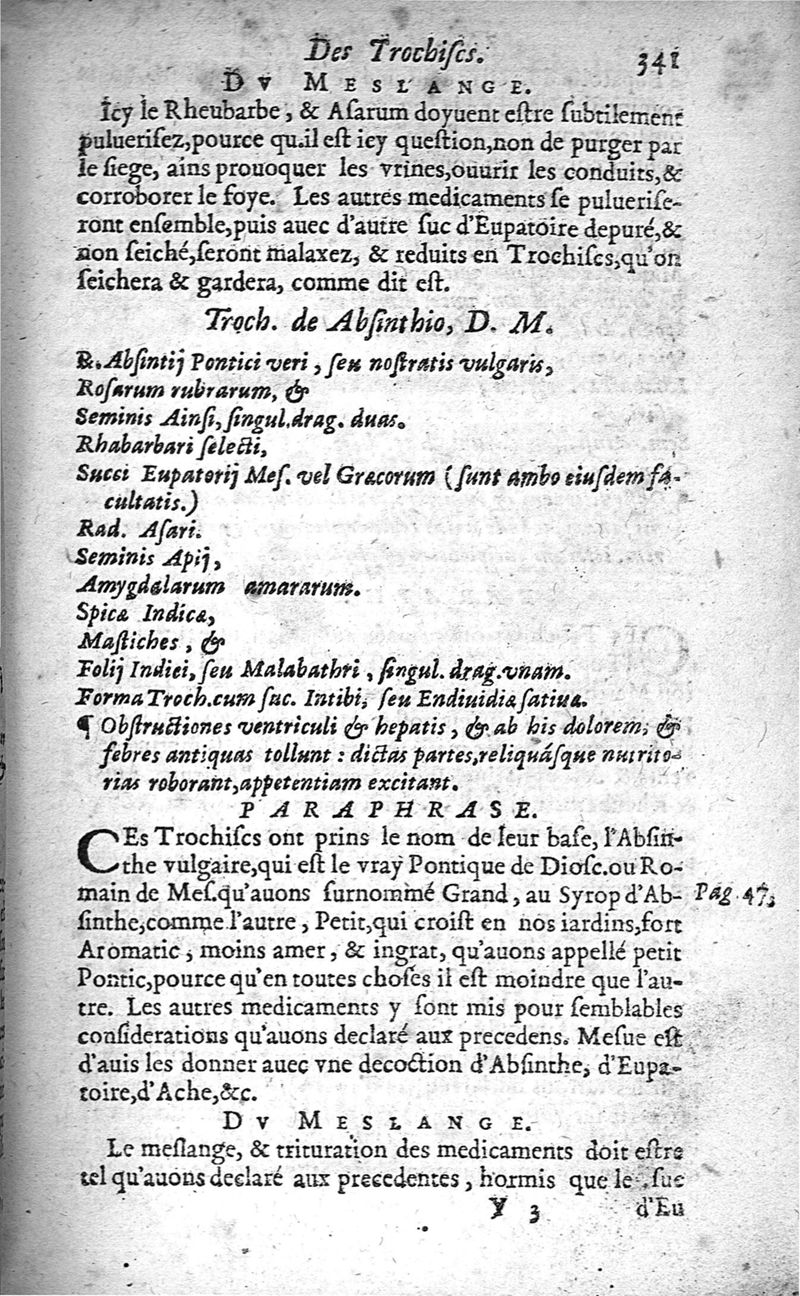 Des Trochiſcs. 341
DV MESLANGE.
Icy le Rheubarbe, & Aſarum doyuent eſtre ſubtilement
pulueriſez,pource qu.il eſt icy queſtion,non de purger par
le ſiege, ains prouoquer les vrines,ouurir les conduits,&
corroborer le foye. Les autres medicaments ſe pulueriſe-
ront enſemble,puis auec d'autre ſuc d'Eupatoire depuré,&
non ſeiché,ſeront malaxez, & reduits en Trochiſcs,qu'on
ſeichera & gardera, comme dit eſt.
Troch. de Abſinthio, D. M.
℞. Abſintij Pontici veri, ſeu noſtratis vulgaris,
Roſarum rubrarum, &
Seminis Ainſi, ſingul.drag. duas.
Rhabarbari ſelecti,
Succi Eupatorij Meſ. vel Græcorum (ſunt ambo eiuſdem fa-
cultatis.)
Rad. Aſari.
Seminis Apij,
Amygdalarum amararum.
Spicæ Indicæ,
Maſtiches, &
Folij Indici, ſeu Malabathri, ſingul. drag.vnam.
Forma Troch.cum ſuc. Intibi, ſeu Endiuidiæ ſatiuæ.
¶ Obſtructiones ventriculi & hepatis, & ab his dolorem, &
febres antiquas tollunt : dictas partes,reliquáſque nutrito-
rias roborant,appetentiam excitant.
PARAPHRASE.
CEs Trochiſcs ont prins le nom de leur baſe, l'Abſin-
the vulgaire,qui eſt le vray Pontique de Dioſc.ou Ro-
main de Meſ.qu'auons ſurnommé Grand, au Syrop d'Ab- Pag. 47,
ſinthe,comme l'autre, Petit,qui croiſt en nos iardins,fort
Aromatic, moins amer, & ingrat, qu'auons appellé petit
Pontic,pource qu'en toutes choſes il eſt moindre que l'au-
tre. Les autres medicaments y ſont mis pour ſemblables
conſiderations qu'auons declaré aux precedens. Meſue eſt
d'auis les donner auec vne decoction d'Abſinthe, d'Eupa-
toire,d'Ache,&c.
DV MESLANGE.
Le meſlange, & trituration des medicaments doit eſtre
tel qu'auons declaré aux precedentes, hormis que le ſuc
Y 3 d'Eu